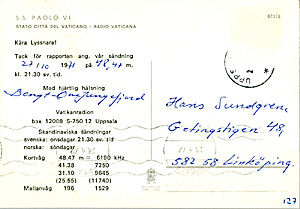 S.S. PAOLO VI
STATO CITTÀ DEL VATICANO - RADIO VATICANA
Kära Lyssnare!
Tack för rapporten ang. vår sändning
27/10 1971 på 48,47 m.
kl. 21.30 sv. tid.
Med hjärtlig hälsning
Vatikanradion
box 12008 S-750 12 Uppsala
Skandinaviska sändningar
svenska: onsdagar 21.30 sv. tid
norska: söndagar
Kortvåg 48.47 m = 6190 kHz
41.38 7250
31.10 9645
(25.55) (11740)
Mellanvåg 196 1529
Hans Sundgren
Getingstigen 48,
582 58 Linköping.
127